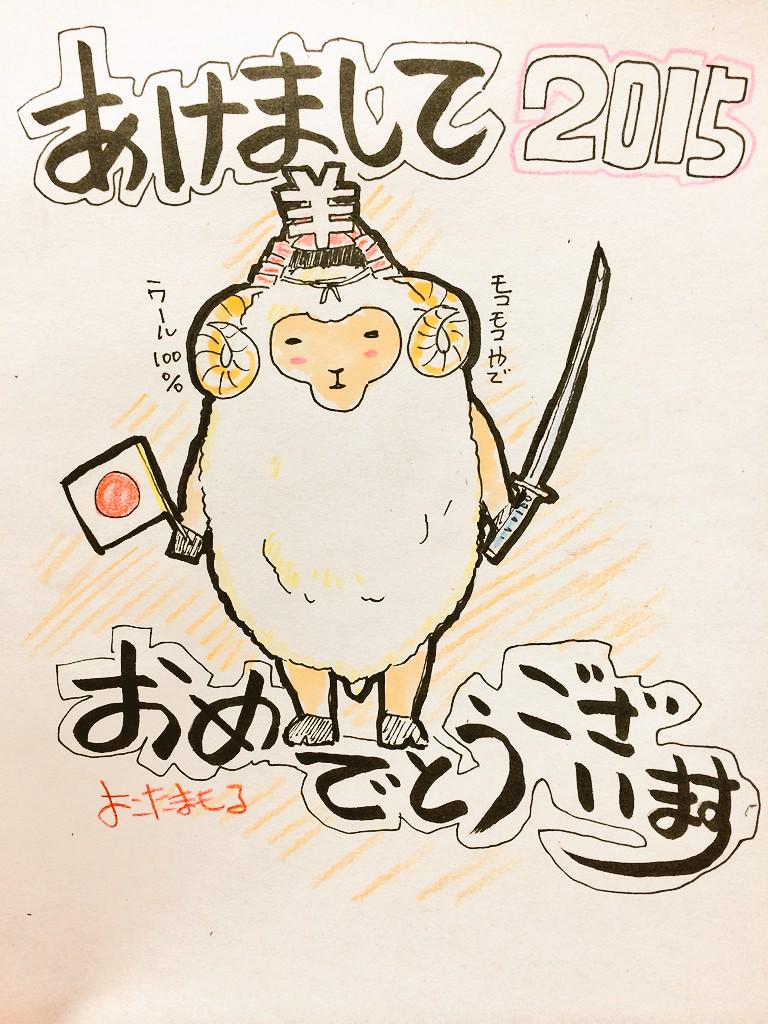 あけまして 2015
羊
ウール100%
モコモコやで
おめでとうございます